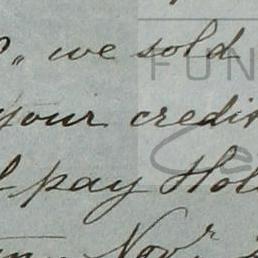 we sold
your credit
pay Hol
Novr